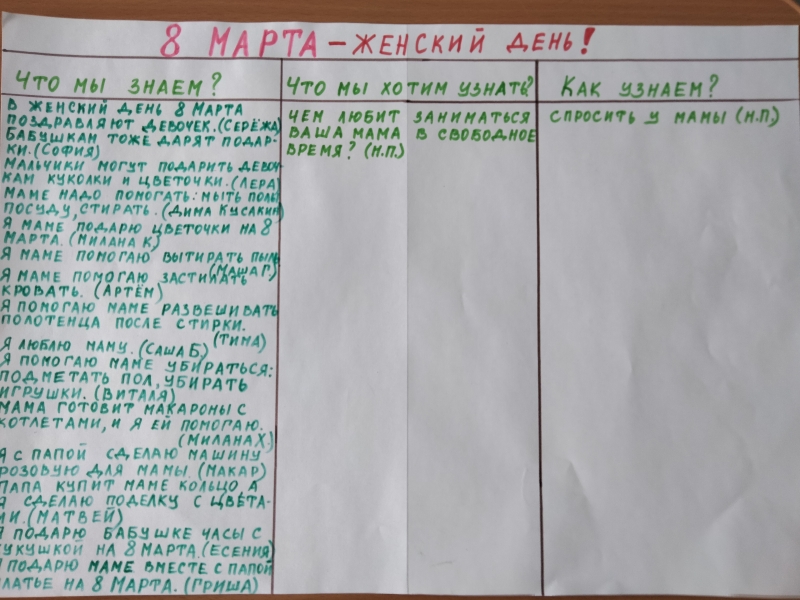 8 МАРТА – ЖЕНСКИЙ ДЕНЬ!
ЧТО МЫ ЗНАЕМ?
В ЖЕНСКИЙ ДЕНЬ 8 МАРТА
ПОЗДРАВЛЯЮТ ДЕВОЧЕК. (СЕРЁЖА)
БАБУШКАМ ТОЖЕ ДАРЯТ ПОДАР-
КИ. (СОФИЯ)
МАЛЬЧИКИ МОГУТ ПОДАРИТЬ ДЕВОЧ-
КАМ КУКОЛКИ И ЦВЕТОЧКИ. (ЛЕРА)
МАМЕ НАДО ПОМОГАТЬ: МЫТЬ ПОЛЫ
ПОСУДУ, СТИРАТЬ. (ДИМА КУСАКИН)
Я МАМЕ ПОДАРЮ ЦВЕТОЧКИ НА 8
МАРТА. (МИЛАНА К)
Я МАМЕ ПОМОГАЮ ВЫТИРАТЬ ПЫЛЬ
(МАША Г.)
Я МАМЕ ПОМОГАЮ ЗАСТИЛАТЬ
КРОВАТЬ. (АРТЁМ)
Я ПОМОГАЮ МАМЕ РАЗВЕШИВАТЬ
ПОЛОТЕНЦА ПОСЛЕ СТИРКИ.
(ТИМА)
Я ЛЮБЛЮ МАМУ. (САША Б)
Я ПОМОГАЮ МАМЕ УБИРАТЬСЯ:
ПОДМЕТАТЬ ПОЛ, УБИРАТЬ
ИГРУШКИ. (ВИТАЛЯ)
МАМА ГОТОВИТ МАКАРОНЫ С
КОТЛЕТАМИ, И Я ЕЙ ПОМОГАЮ.
(МИЛАНА Х.)
Я С ПАПОЙ СДЕЛАЮ МАШИНУ
РОЗОВУЮ ДЛЯ МАМЫ. (МАКАР)
ПАПА КУПИТ МАМЕ КОЛЬЦО, А
Я СДЕЛАЮ ПОДЕЛКУ С ЦВЕТА-
МИ. (МАТВЕЙ)
Я ПОДАРЮ БАБУШКЕ ЧАСЫ С
КУКУШКОЙ НА 8 МАРТА. (ЕСЕНИЯ)
Я ПОДАРЮ МАМЕ ВМЕСТЕ С ПАПОЙ
ПЛАТЬЕ НА 8 МАРТА. (ГРИША)
ЧТО МЫ ХОТИМ УЗНАТЬ?
ЧЕМ ЛЮБИТ ЗАНИМАТЬСЯ
ВАША МАМА В СВОБОДНОЕ
ВРЕМЯ? (Н.П.)
КАК УЗНАЕМ?
СПРОСИТЬ У МАМЫ (Н.П.)